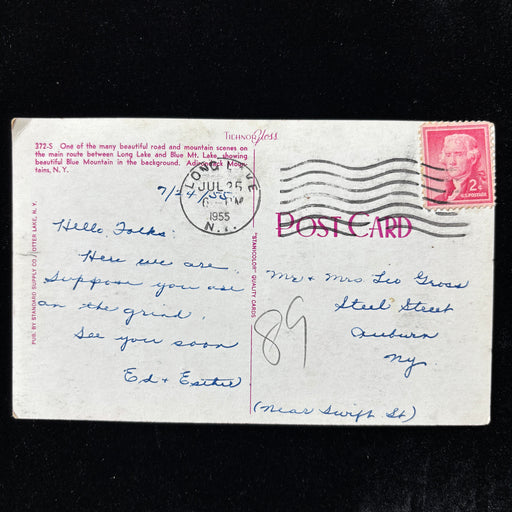 Technor Gloss
372-S One of the many beautiful road and mountain scenes on
the main route between Long Lake and Blue Mt. Lake, showing
beautiful Blue Mountain in the background. Adirondack Moun-
tains, N. Y.
LONG LAKE
JUL 25
PM
1955
N.Y.
2¢
U.S. POSTAGE
7/24/55
POST CARD
Hello Folks:
Here we are.
Suppose you are
on the grind.
See you soon
Ed + Esther
PUB. BY STANDARD SUPPLY CO., OTTER LAKE, N. Y.
"STANICOLOR" QUALITY CARDS
Mr + Mrs. Leo Gross
Steel Street
Auburn
Ny
(Near Swift St)
89